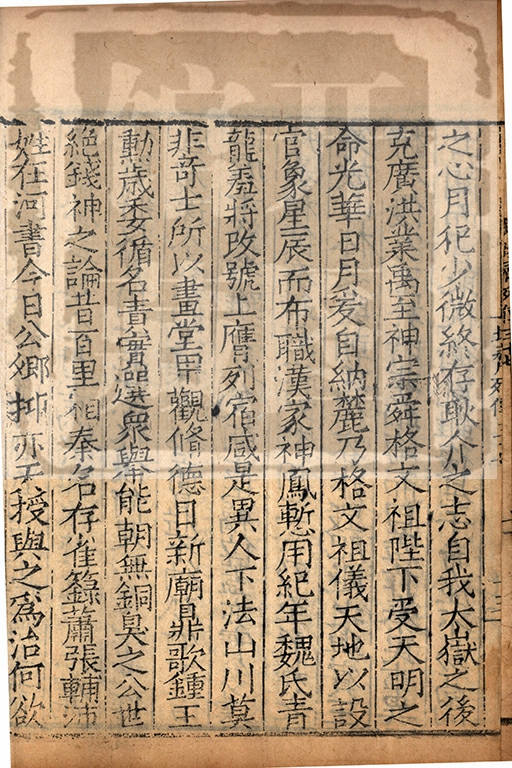 之心月犯少微終存耿介之志自我太嶽之後
克廣洪業禹至神宗舜格文祖陛下受天明之
命光華日月爰自納麓乃格文祖儀天地以設
官象星辰而布職漢家神鳳慙用紀年魏氏青
龍羞將改號上膺列宿咸是異人下法山川莫
非奇士所以畫堂甲觀脩德日新廟鼎歌鍾王
勲歲委循名責實選衆舉能朝無銅臭之公世
絶錢神之論昔百里相秦名存雀籙蕭張輔沛
姓在河書今日公卿抑亦天授與之爲治何欲